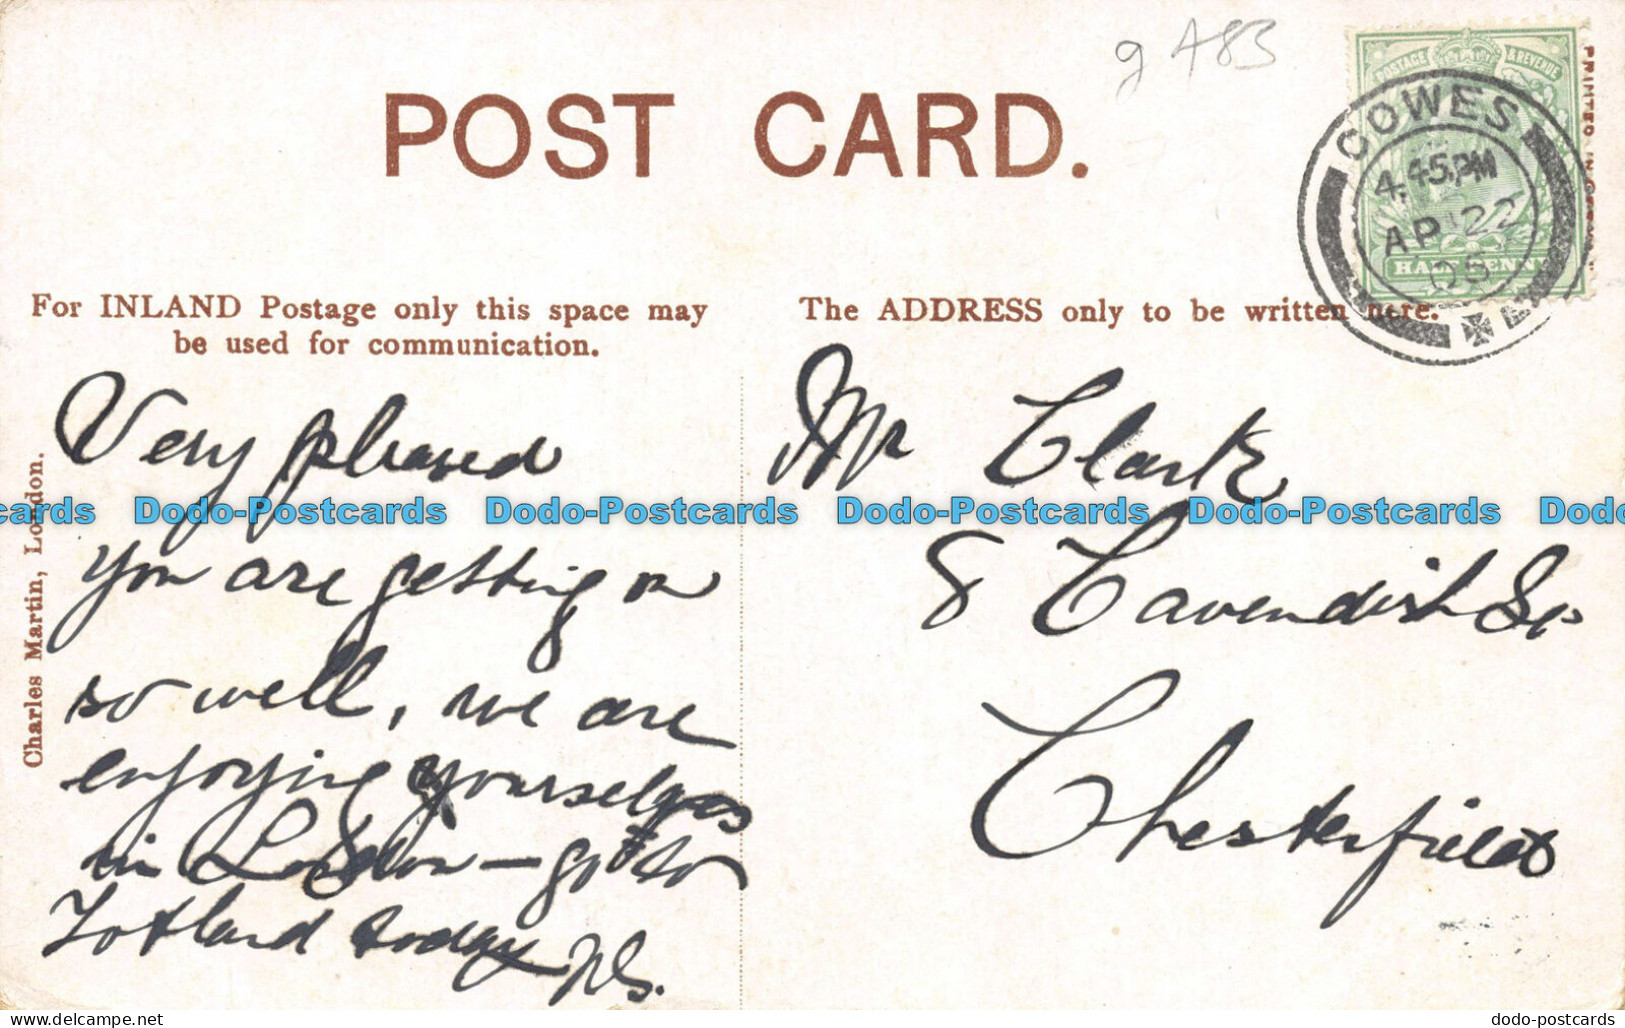 g A83
POST CARD.
POSTAGE & REVENUE
COWES
4.45 PM
AP 22
05
HALFPENNY
PRINTED IN
For INLAND Postage only this space may
be used for communication.
The ADDRESS only to be written here.
Charles Martin, London.
Very pleased
you are getting on
so well, we are
enjoying yourselves
in London — go to
Totland today
Mr Clark
8 Cavendish St
Chesterfield
Dodo-Postcards Dodo-Postcards Dodo-Postcards Dodo-Postcards Dodo-Postcards Dodo-Postcards
www.delcampe.net
dodo-postcards